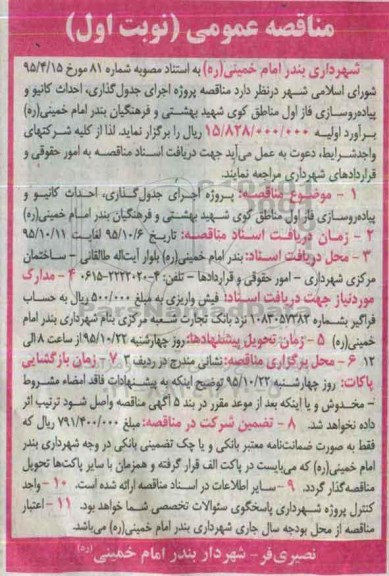 مناقصه عمومی (نوبت اول)
شهرداری بندر امام خمینی(ره) به استناد مصوبه شماره ۸۱ مورخ ۹۵/۴/۱۵
شورای اسلامی شهر درنظر دارد مناقصه پروژه اجرای جدول‌گذاری، احداث کانیو و
پیاده‌روسازی فاز اول مناطق کوی شهید بهشتی و فرهنگیان بندر امام خمینی(ره)
برآورد اولیه ۱۵/۸۲۸/۰۰۰/۰۰۰ ریال را برگزار نماید. لذا از کلیه شرکتهای
واجدشرایط، دعوت به عمل می‌آید جهت دریافت اسناد مناقصه به امور حقوقی و
قراردادهای شهرداری مراجعه نمایند.
۱ - موضوع مناقصه: پروژه اجرای جدول‌گذاری، احداث کانیو و
پیاده‌روسازی فاز اول مناطق کوی شهید بهشتی و فرهنگیان بندر امام خمینی(ره)
۲ - زمان دریافت اسناد مناقصه: تاریخ ۹۵/۱۰/۶ لغایت ۹۵/۱۰/۱۱
۳ - محل دریافت اسناد: بندر امام خمینی(ره) بلوار آیت‌اله طالقانی - ساختمان
مرکزی شهرداری - امور حقوقی و قراردادها - تلفن: ۴-۲۲۲۲۰۲۰-۰۶۱۵ ۴ - مدارک
موردنیاز جهت دریافت اسناد: فیش واریزی به مبلغ ۵۰۰/۰۰۰ ریال به حساب
فراگیر بشماره ۱۰۸۳۰۵۷۳۸۳ نزدبانک تجارت شعبه مرکزی بنام شهرداری بندر امام
خمینی(ره) ۵ - زمان تحویل پیشنهادها: روز چهارشنبه ۹۵/۱۰/۲۲ از ساعت ۸ الی
۱۲ ۶ - محل برگزاری مناقصه: نشانی مندرج در ردیف ۳ ۷ - زمان بازگشایی
پاکات: روز چهارشنبه ۹۵/۱۰/۲۲ توضیح اینکه به پیشنهادات فاقد امضاء مشروط
- مخدوش و یا اینکه بعد از موعد مقرر در بند ۵ آگهی مناقصه واصل شود ترتیب اثر
داده نخواهد شد. ۸ - تضمین شرکت در مناقصه: مبلغ ۷۹۱/۴۰۰/۰۰۰ ریال که
فقط به صورت ضمانت‌نامه معتبر بانکی و یا چک تضمینی بانکی در وجه شهرداری بندر
امام خمینی(ره) که می‌بایست در پاکت الف قرار گرفته و همزمان با سایر پاکت‌ها تحویل
مناقصه‌گذار گردد. ۹ - سایر اطلاعات در اسناد مناقصه ارائه شده است. ۱۰ - واحد
کنترل پروژه شهرداری پاسخگوی سئوالات تخصصی شما خواهد بود. ۱۱ - اعتبار
مناقصه از محل بودجه سال جاری شهرداری بندر امام خمینی(ره) می‌باشد.
نصیری‌فر - شهردار بندر امام خمینی (ره)